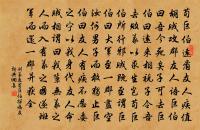 荀巨伯遠看友人疾值
胡賊攻郡友人語巨伯
曰吾今死矣子可去巨
伯曰遠來相視子令吾
去敗義以求生豈荀巨
伯所行邪賊既至謂巨
伯曰大軍至一郡盡空
汝何男子而敢獨止巨
伯曰友人有疾不忍委
之寧以我身代友人命
賊相謂曰我輩無義之
人而入有義之國遂班
軍而還一郡並獲全